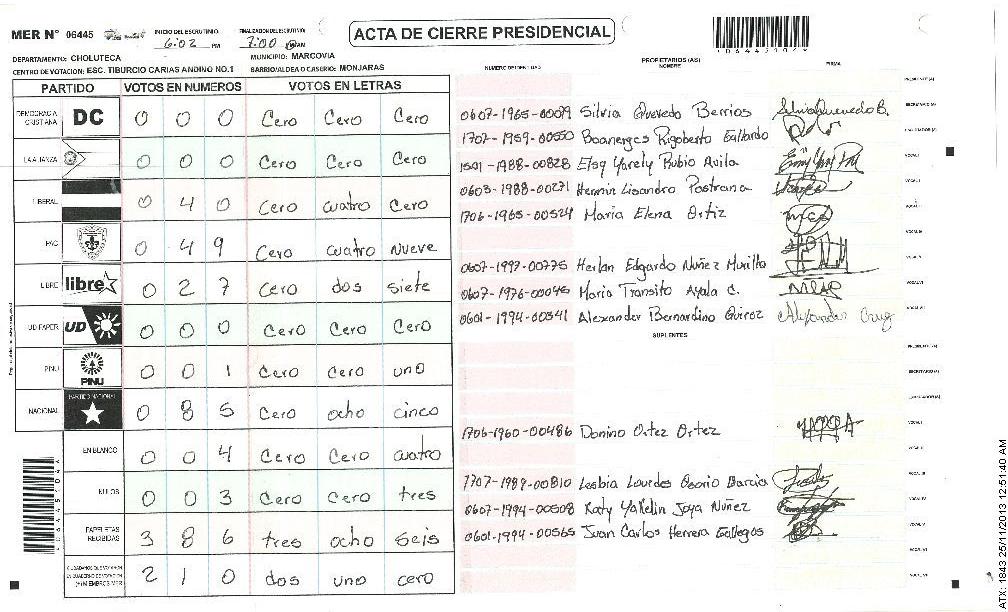 MER N° 06445
INICIO DEL ESCRUTINIO
6:02 PM
FINALIZACION DE ESCRUTINIO
7:00 AM
ACTA DE CIERRE PRESIDENCIAL
DEPARTAMENTO: CHOLUTECA
MUNICIPIO: MARCOVIA
CENTRO DE VOTACION: ESC. TIBURCIO CARIAS ANDINO NO.1
BARRIO/ALDEA O CASERIO: MONJARAS
PARTIDO VOTOS EN NUMEROS VOTOS EN LETRAS
DEMOCRACIA CRISTIANA DC 0 0 0 Cero Cero Cero
LA ALIANZA 0 0 0 Cero Cero Cero
LIBERAL 0 4 0 Cero cuatro Cero
PAC 0 4 9 Cero cuatro Nueve
LIBRE libre 0 2 7 Cero dos siete
UD FAPER UD 0 0 0 Cero Cero Cero
PINU PINU 0 0 1 Cero Cero uno
NACIONAL PARTIDO NACIONAL 0 8 5 Cero ocho cinco
EN BLANCO 0 0 4 Cero Cero cuatro
NULOS 0 0 3 Cero Cero tres
PAPELETAS RECIBIDAS 3 8 6 tres ocho seis
CIUDADANOS QUE VOTARON EN CUADERNO DE VOTACION (+) MIEMBROS MER 2 1 0 dos uno cero
NUMERO DE IDENTIDAD
PROPIETARIOS (AS)
NOMBRE
FIRMA
PRESIDENTE (A)
0607-1965-00079 Silvia Quevedo Berrios SECRETARIO (A)
1707-1959-00550 Boanerges Rigoberto Gallardo
1501-1988-00828 Elsy Yarely Rubio Avila VOCAL I
0603-1988-00271 Hermin Lisandro Pastrana
1706-1965-00524 Maria Elena Ortiz
0607-1997-00775 Herlan Edgardo Nuñez Murillo
0607-1976-00045 Maria Transito Ayala C.
0601-1994-00341 Alexander Bernardino Quiroz
SUPLENTES
PRESIDENTE (A)
SECRETARIO (A)
1706-1960-00486 Donino Ortez Ortez
1707-1989-00810 Lesbia Lourdes Osorio Garcia
0607-1994-00508 Katy Yakelin Joya Nuñez
0601-1994-00565 Juan Carlos Herrera Gallegos
ATX: 1843 25/11/2013 12:51:40 AM